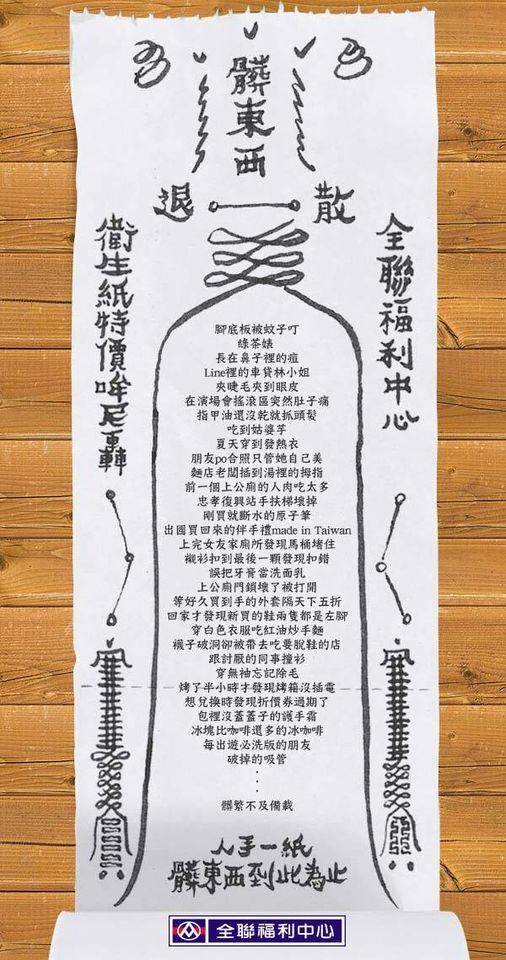 髒東西
退 散
全聯福利中心
衛生紙特價哞尼轟
腳底板被蚊子叮
綠茶婊
長在鼻子裡的痘
Line裡的車貸林小姐
夾睫毛夾到眼皮
在演場會搖滾區突然肚子痛
指甲油還沒乾就抓頭髮
吃到姑婆芋
夏天穿到發熱衣
朋友po合照只管她自己美
麵店老闆插到湯裡的拇指
前一個上公廁的人肉吃太多
忠孝復興站手扶梯壞掉
剛買就斷水的原子筆
出國買回來的伴手禮made in Taiwan
上完女友家廁所發現馬桶堵住
襯衫扣到最後一顆發現扣錯
誤把牙膏當洗面乳
上公廁門鎖壞了被打開
等好久買到手的外套隔天下五折
回家才發現新買的鞋兩隻都是左腳
穿白色衣服吃紅油炒手麵
襪子破洞卻被帶去吃要脫鞋的店
跟討厭的同事撞衫
穿無袖忘記除毛
烤了半小時才發現烤箱沒插電
想兌換時發現折價券過期了
包裡沒蓋蓋子的護手霜
冰塊比咖啡還多的冰咖啡
每出遊必洗版的朋友
破掉的吸管
．
．
．
髒繁不及備載
人手一紙
髒東西到此為止
全聯福利中心